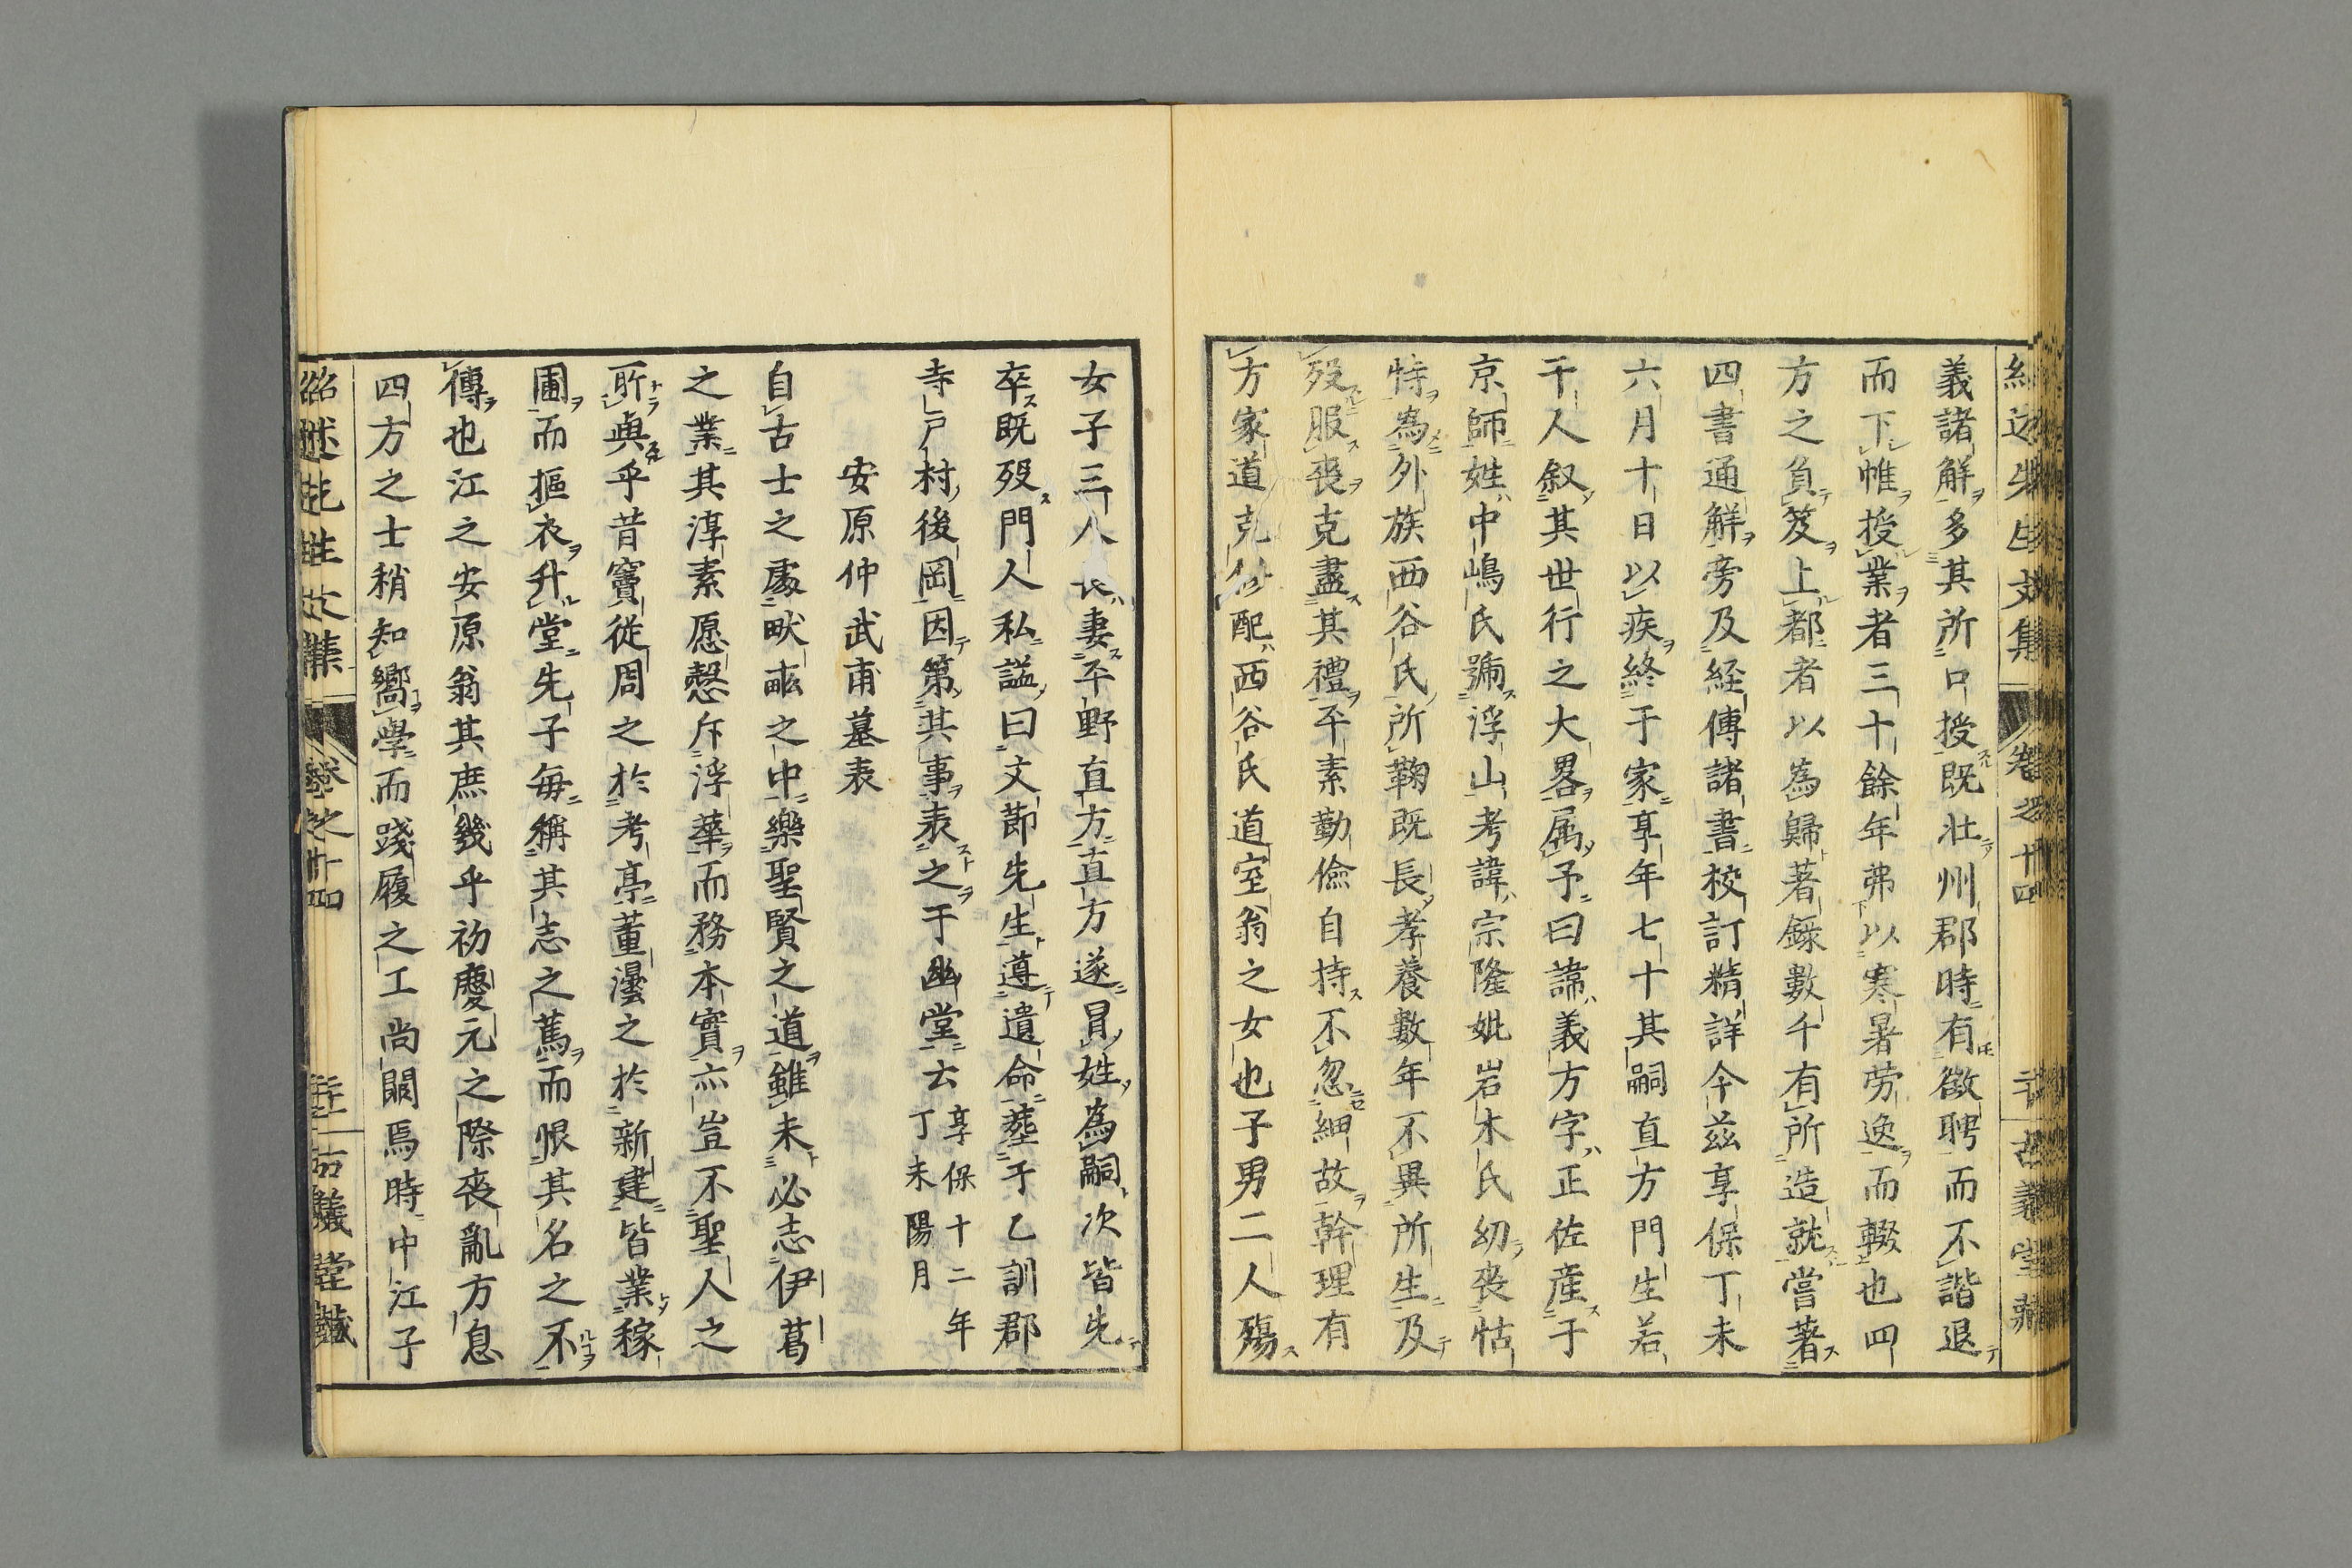 義諸解多其所口授既壮州郡時有徵聘而不諧退
而下帷授業者三十餘年弗以寒暑労逸而輟也四
方之負笈上都者以為歸著錄數千有所造就嘗著
四書通解旁及経傳諸書校訂精詳今茲享保丁未
六月十日以疾終于家享年七十其嗣直方門生若
干人叙其世行之大畧属予曰諱義方字正佐産于
京師姓中嶋氏號浮山考諱宗隆妣岩木氏幼喪怙
恃為外族西谷氏所鞠既長孝養數年不異所生及
歿服喪克盡其禮平素勤儉自持不忽細故幹理有
方家道克配西谷氏道室翁之女也子男二人殤
女子三人長妻平野直方直方遂冒姓為嗣次皆先
卒既歿門人私謚曰文節先生遵遺命塟于乙訓郡
寺戸村後岡因第其事表之于幽堂云享保十二年
丁未陽月
安原仲武甫墓表
自古士之處畎畝之中樂聖賢之道雖未必志伊葛
之業其淳素愿愨斥浮華而務本實亦豈不聖人之
所與乎昔竇從周之於考亭董澐之於新建皆業稼
圃而摳衣升堂先子每稱其志之篤而恨其名之不
傳也江之安原翁其庶幾乎初慶元之際喪亂方息
四方之士稍知嚮學而踐履之工尚闕焉時中江子
紹述先生文集 卷之十四 古義堂藏